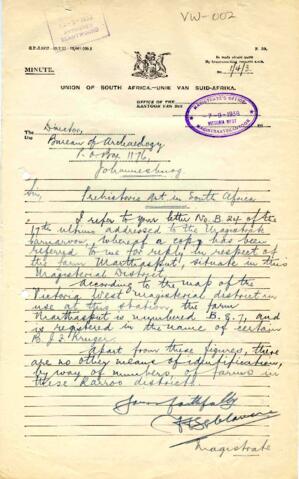 VW-002
MINUTE.
No. 1/4/3
UNION OF SOUTH AFRICA.—UNIE VAN SUID-AFRIKA.
OFFICE OF THE
KANTOOR VAN DIE
MAGISTRATE'S OFFICE
7-9-1938
VICTORIA WEST
MAGISTRAATSKANTOOR
The Director,
Die
Bureau of Archaeology
P.O Box 1176,
Johannesburg
Sir,
Prehistoric Art in South Africa
I refer to your letter No. B.24 of the
17th ultimo addressed to the Magistrate
Carnarvon, whereof a copy has been
referred to me for reply in respect of
the farm "Marthasput", situate in this
Magisterial District.
According to the map of the
Victoria West magisterial district in
use at this station, the farm
Marthasput is numbered B.g.7, and
is registered in the name of certain
Kruger.
Apart from these figures, there
are no other means of identification,
by way of numbers, of farms in
these Karroo districts.
Yours faithfully
Magistrate